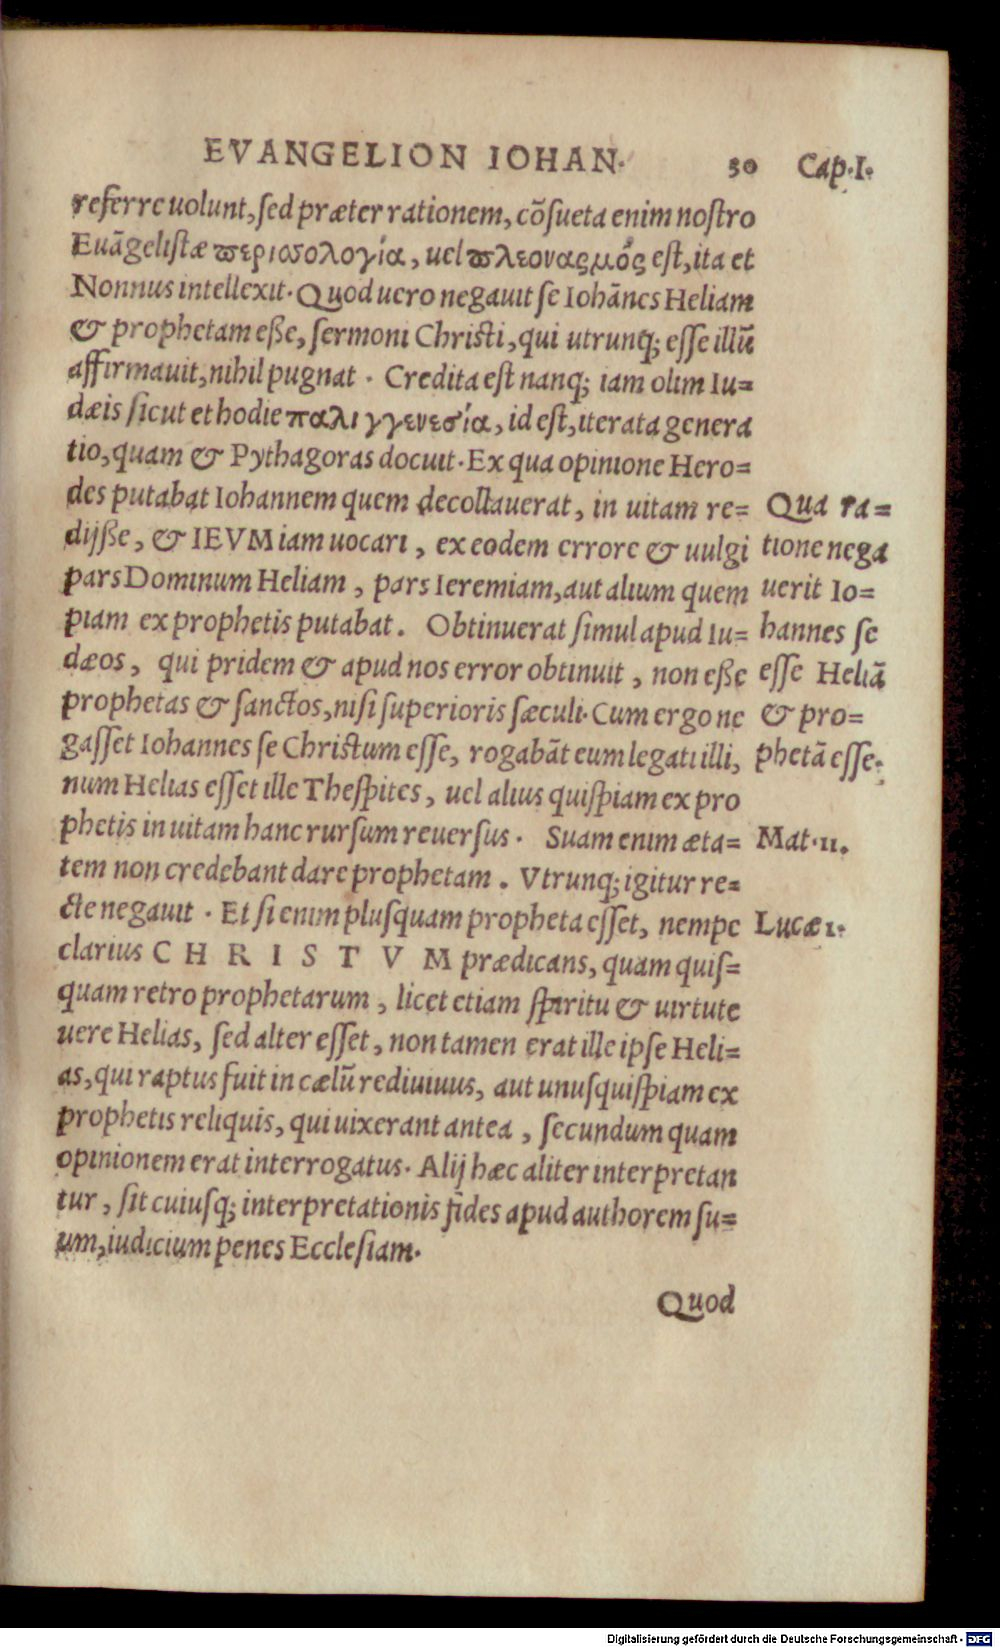 EVANGELION IOHAN. 30 Cap.I.
referre uolunt, ſed præter rationem, cõſueta enim noſtro
Euãgeliſtæ ϖεριοσολογία, uel ϖλεονασμός est, ita et
Nonnus intellexit. Quod uero negauit ſe Iohãnes Heliam
& prophetam eße, ſermoni Chriſti, qui utrunq; eſſe illũ
affirmauit, nihil pugnat. Credita est nanq; iam olim Iu=
dæis ſicut et hodie παλιγγενεσία, id eſt, iterata genera
tio, quam & Pythagoras docuit. Ex qua opinione Hero=
des putabat Iohannem quem decollauerat, in uitam re=
dijße, & IEVM iam uocari, ex eodem errore & uulgi
pars Dominum Heliam, pars Ieremiam, aut alium quem
piam ex prophetis putabat. Obtinuerat ſimul apud Iu=
dæos, qui pridem & apud nos error obtinuit, non eße
prophetas & ſanctos, niſi ſuperioris ſæculi. Cum ergo ne
gaſſet Iohannes ſe Chriſtum eſſe, rogabãt eum legati illi,
num Helias eſſet ille Theſpites, uel alius quiſpiam ex pro
phetis in uitam hanc rurſum reuerſus. Suam enim æta=
tem non credebant dare prophetam. Vtrunq; igitur re=
cte negauit. Et ſi enim pluſquam propheta eſſet, nempe
clarius CHRISTVM prædicans, quam quiſ=
quam retro prophetarum, licet etiam ſpiritu & uirtute
uere Helias, ſed alter eſſet, non tamen erat ille ipſe Heli=
as, qui raptus fuit in cælũ rediuiuus, aut unuſquiſpiam ex
prophetis reliquis, qui uixerant antea, ſecundum quam
opinionem erat interrogatus. Alij hæc aliter interpretan
tur, ſit cuiuſq; interpretationis fides apud authorem ſu=
um, iudicium penes Eccleſiam.
Quod
Qua ra=
tione nega
uerit Io=
hannes ſe
eſſe Heliã
& pro=
phetã eſſe.
Mat.11.
Lucæ 1.
Digitalisierung gefördert durch die Deutsche Forschungsgemeinschaft - DFG